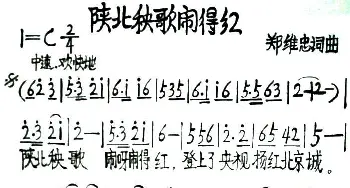 陕北秧歌闹得红
1=C 2/4
郑维忠词曲
中速、欢快地
(623|5.3 21|6.i i6|535|6.i i6|5.5 63|2-|2-)|
2.3 2i|2-|5.3 2i|6-|556|2.2|65 42|5-|
陕北秧歌 闹呀闹得红，登上了央视扬红北京城。